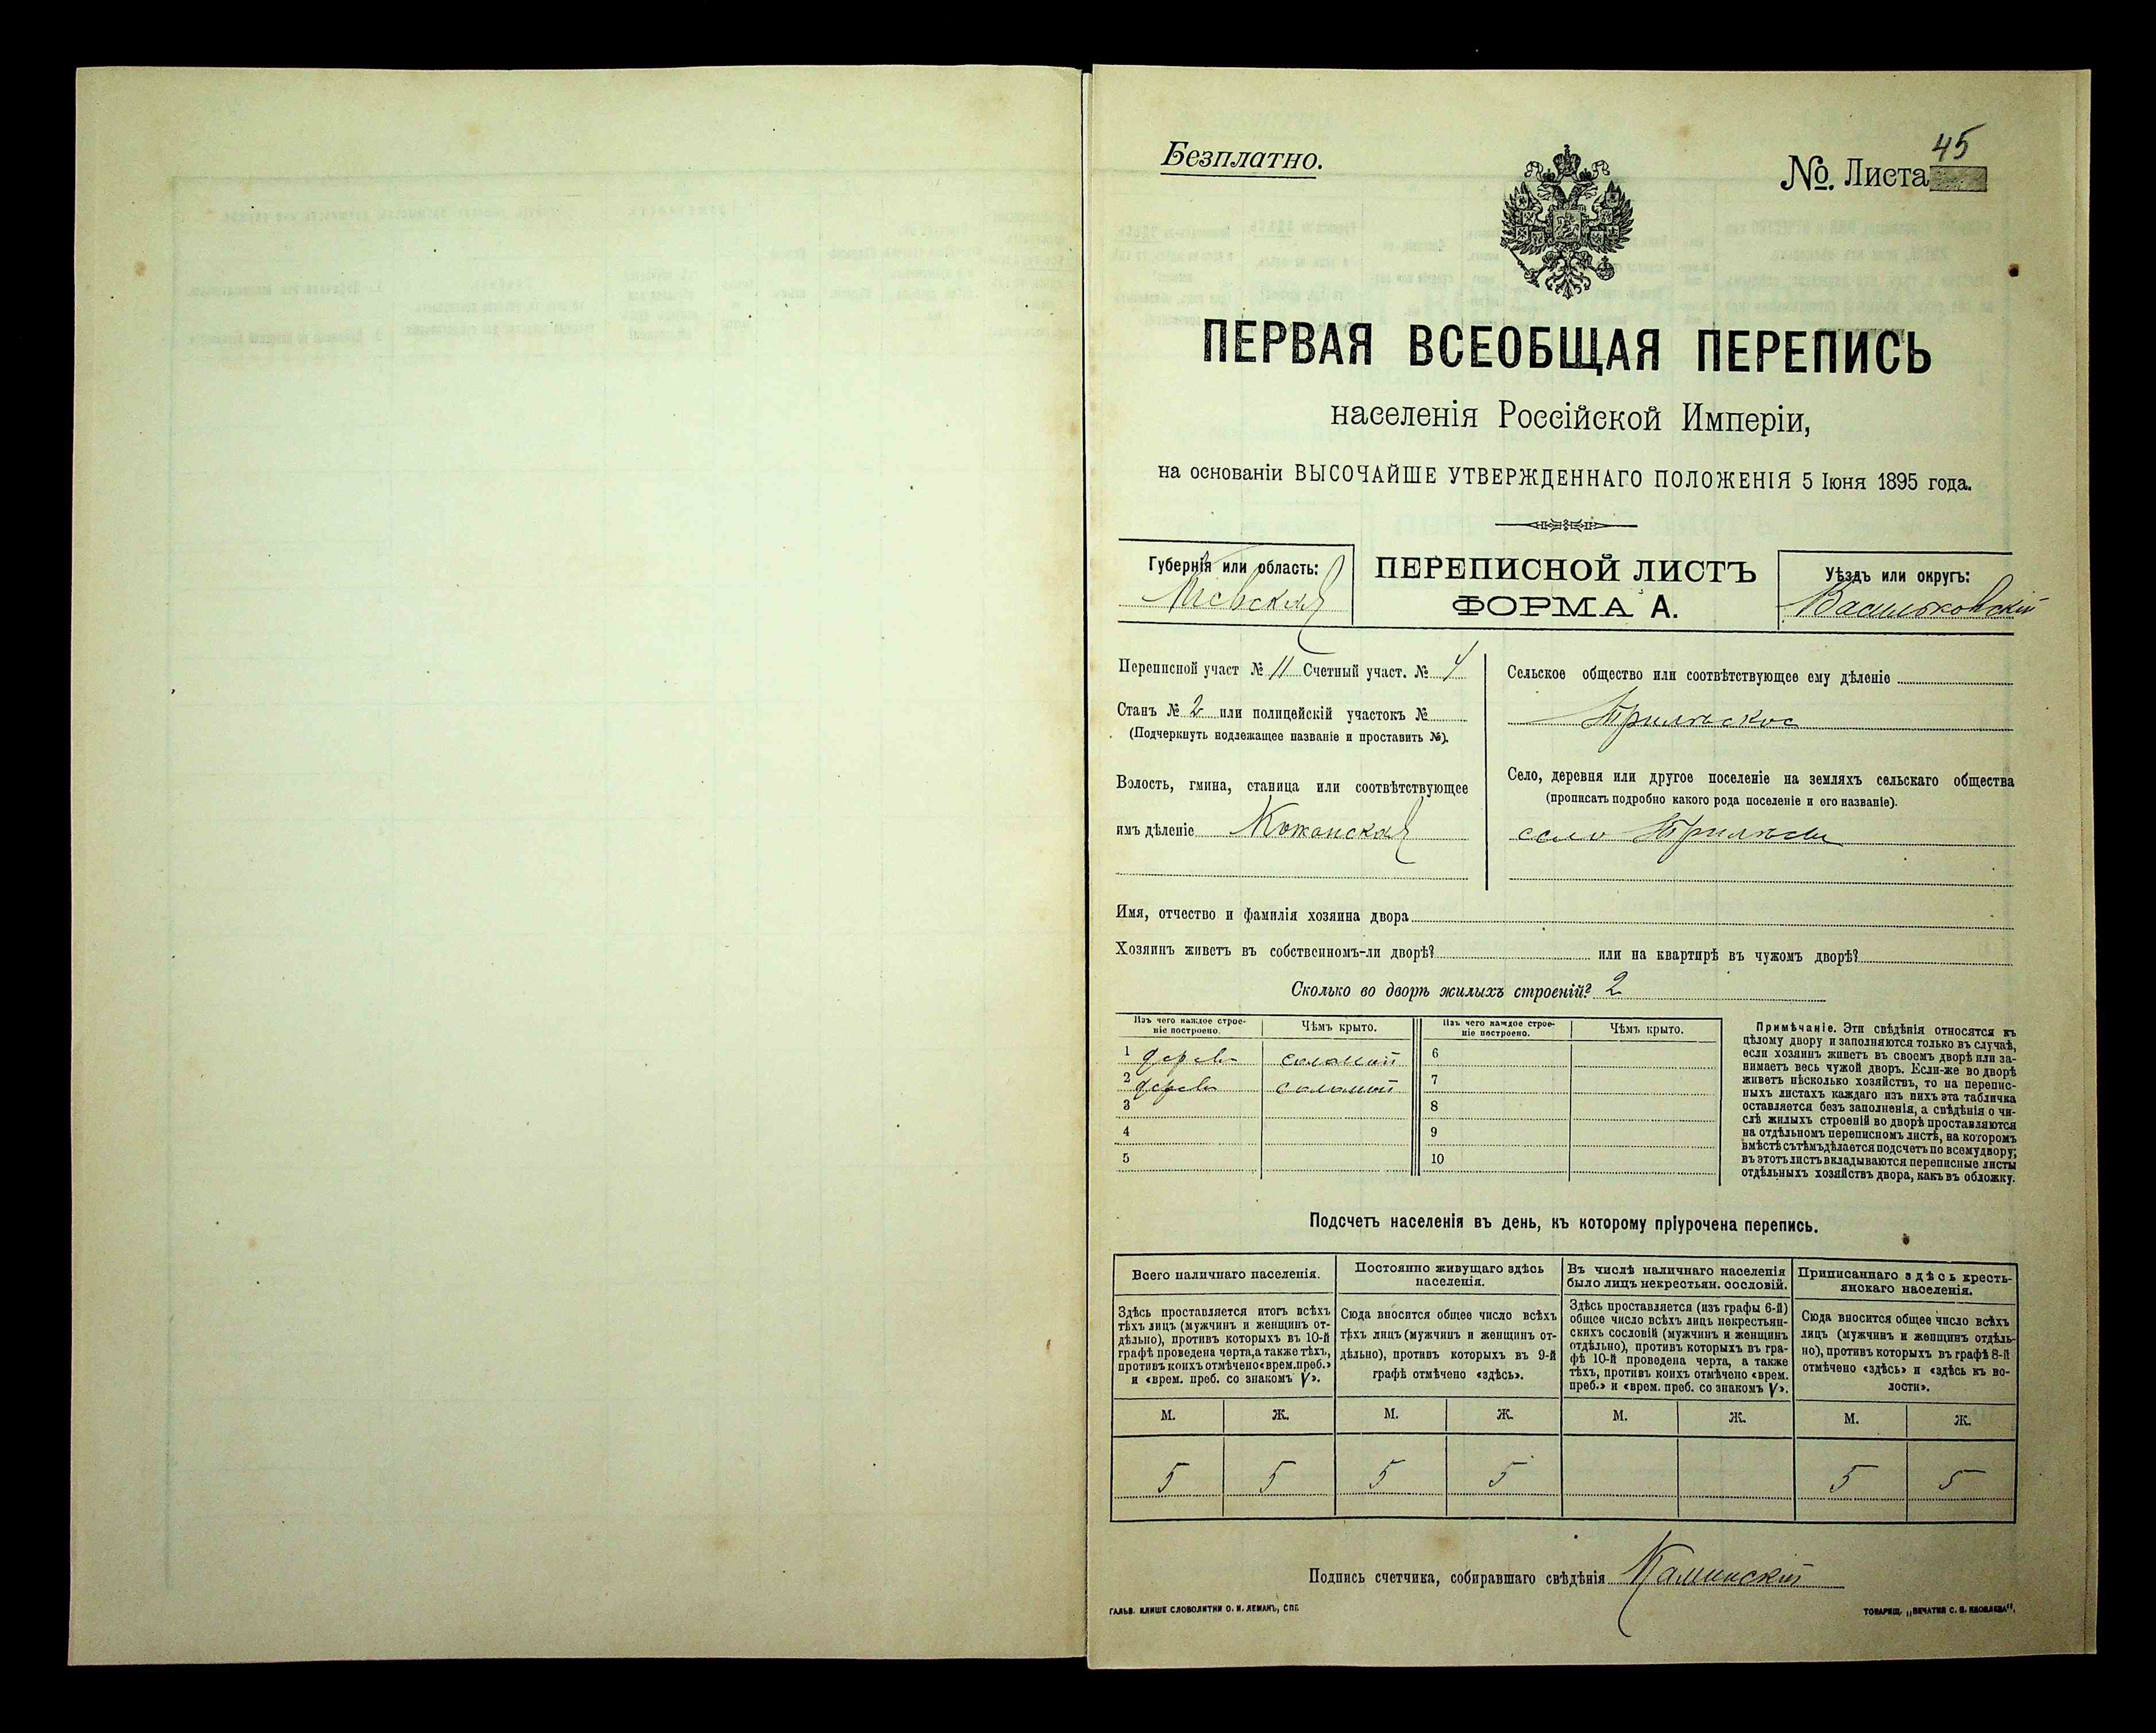 Безплатно.
№. Листа 45
ПЕРВАЯ ВСЕОБЩАЯ ПЕРЕПИСЬ
населенія Россійской Имперіи,
на основаніи ВЫСОЧАЙШЕ УТВЕРЖДЕННАГО ПОЛОЖЕНІЯ 5 Іюня 1895 года.
Губернія или область:
Кіевская
ПЕРЕПИСНОЙ ЛИСТЪ
ФОРМА А.
Уѣздъ или округъ:
Васильковскій
Переписной участ № 11 Счетный участ. № 4
Станъ № 2 или полицейскій участокъ №
(Подчеркнуть подлежащее названіе и проставить №).
Волость, гмина, станица или соотвѣтствующее
имъ дѣленіе Кожанская
Сельское общество или соотвѣтствующее ему дѣленіе
Трилѣское
Село, деревня или другое поселеніе на земляхъ сельскаго общества
(прописать подробно какого рода поселеніе и его названіе).
село Трилѣсы
Имя, отчество и фамилія хозяина двора
Хозяинъ живетъ въ собственномъ-ли дворѣ? или на квартирѣ въ чужомъ дворѣ?
Сколько во дворѣ жилыхъ строеній? 2
Изъ чего каждое строе-
ніе построено.
Чѣмъ крыто.
Изъ чего каждое строе-
ніе построено.
Чѣмъ крыто.
1 дерев соломой 6
2 дерев соломой 7
3 8
4 9
5 10
Примѣчаніе. Эти свѣдѣнія относятся къ
цѣлому двору и заполняются только въ случаѣ,
если хозяинъ живетъ въ своемъ дворѣ или за-
нимаетъ весь чужой дворъ. Если-же во дворѣ
живетъ нѣсколько хозяйствъ, то на перепис-
ныхъ листахъ каждаго изъ нихъ эта табличка
оставляется безъ заполненія, а свѣдѣнія о чи-
слѣ жилыхъ строеній во дворѣ проставляются
на отдѣльномъ переписномъ листѣ, на которомъ
вмѣстѣ съ тѣмъ дѣлается подсчетъ по всему двору;
въ этотъ листъ вкладываются переписные листы
отдѣльныхъ хозяйствъ двора, какъ въ обложку.
Подсчетъ населенія въ день, къ которому пріурочена перепись.
Всего наличнаго населенія.
Здѣсь проставляется итогъ всѣхъ
тѣхъ лицъ (мужчинъ и женщинъ от-
дѣльно), противъ которыхъ въ 10-й
графѣ проведена черта, а также тѣхъ,
противъ коихъ отмѣчено «врем. преб.»
и «врем. преб. со знакомъ V».
Постоянно живущаго здѣсь
населенія.
Сюда вносится общее число всѣхъ
тѣхъ лицъ (мужчинъ и женщинъ от-
дѣльно), противъ которыхъ въ 9-й
графѣ отмѣчено «здѣсь».
Въ числѣ наличнаго населенія
было лицъ некрестьян. сословій.
Здѣсь проставляется (изъ графы 6-й)
общее число всѣхъ лицъ некрестьян-
скихъ сословій (мужчинъ и женщинъ
отдѣльно), противъ которыхъ въ гра-
фѣ 10-й проведена черта, а также
тѣхъ, противъ коихъ отмѣчено «врем.
преб.» и «врем. преб. со знакомъ V».
Приписаннаго здѣсь кресть-
янскаго населенія.
Сюда вносится общее число всѣхъ
лицъ (мужчинъ и женщинъ отдѣль-
но), противъ которыхъ въ графѣ 8-й
отмѣчено «здѣсь» и «здѣсь въ во-
лости».
М. Ж. М. Ж. М. Ж. М. Ж.
5 5 5 5 5 5
Подпись счетчика, собиравшаго свѣдѣнія Каминскій
ГАЛЬВ. КЛИШЕ СЛОВОЛИТНИ О. И. ЛЕМАНЪ, СПБ.
ТОВАРИЩ. „ПЕЧАТНЯ С. П. ЯКОВЛЕВА“.